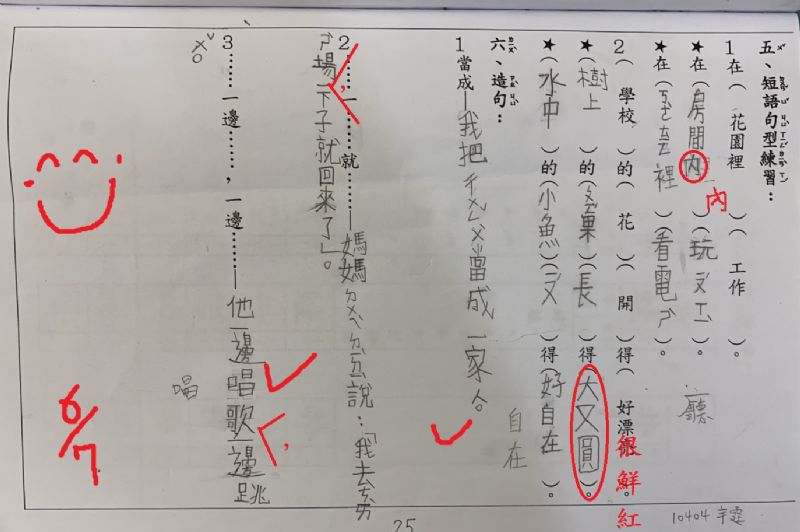 五、短語句型練習：
1在（花園裡）（工作）。
★在（房間內）（玩ㄡㄒㄧˋ）。
內
★在（ㄎㄜˋㄊㄧㄥ裡）（看電ㄕˋ）。
廳
2（學校）的（花）開得（好漂亮）。
很鮮紅
★（樹上）的（ㄕㄨㄟˇ果）長得（大又圓）。
★（水中）的（小魚）ㄧㄡˊ得（好自在）。
自在
六、造句：
1當成—我把
當成一家人。
2……一……就……—媽媽
說：「我去
場，一下子就回來了」。
3……一邊……，一邊……—他一邊唱歌，一邊跳
ㄨˇ。
唱
6/7
25
10404